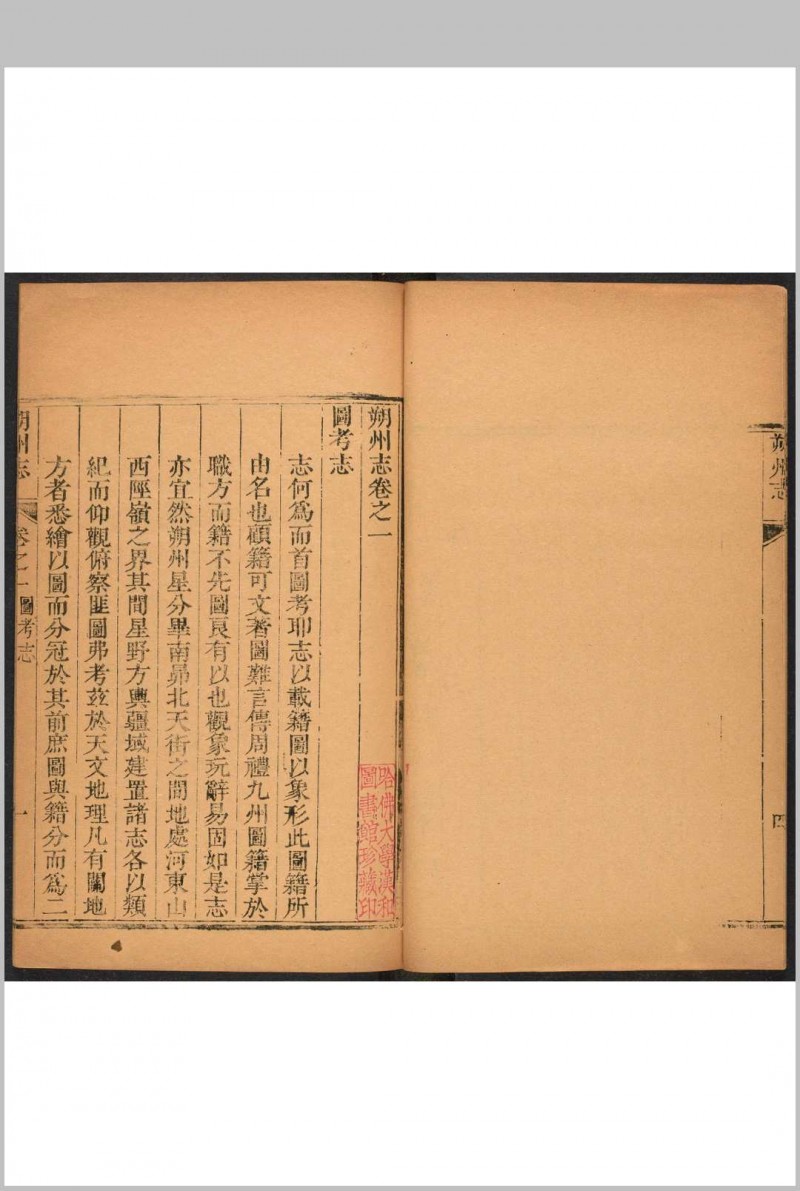 朔州志
四
朔州志卷之一
圖考志
志何爲而首圖考耶志以載籍圖以象形此圖籍所
由名也顧籍可文著圖難言傳周禮九州圖籍掌於
職方而籍不先圖良有以也觀象玩辭易固如是志
亦宜然朔州星分畢南昴北天街之間地處河東山
西陘嶺之界其間星野方輿疆域建置諸志各以類
紀而仰觀俯察匪圖弗考茲於天文地理凡有關地
方者悉繪以圖而分冠於其前庶圖與籍分而爲二
朔州志
卷之一圖考志
一
哈佛大學漢和
圖書館珍藏印